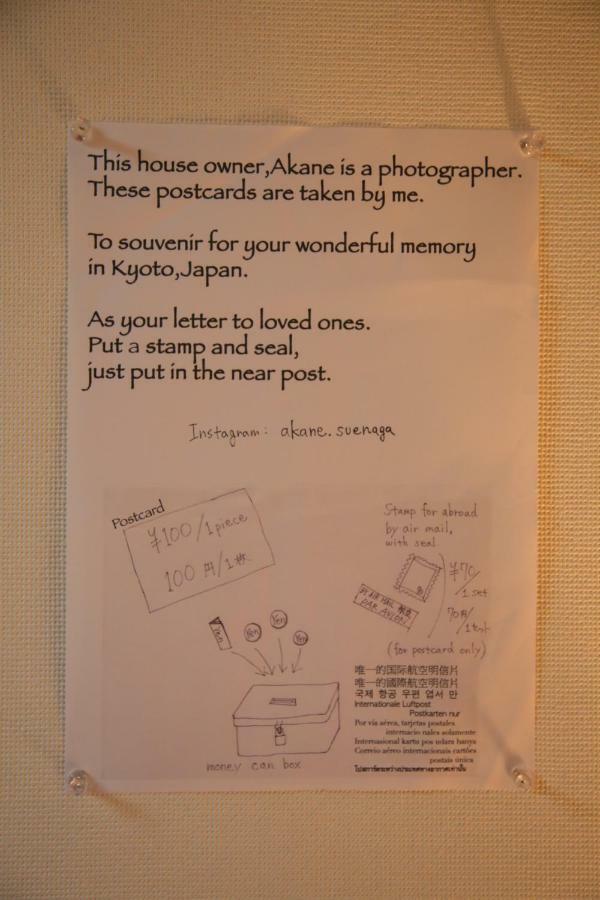 This house owner,Akane is a photographer.
These postcards are taken by me.
To souvenir for your wonderful memory
in Kyoto,Japan.
As your letter to loved ones.
Put a stamp and seal,
just put in the near post.
Instagram: akane.suenaga
Postcard
¥100/1piece
100円/1枚
Stamp for abroad
by air mail,
with seal
BY AIR MAIL 航空
PAR AVION
¥70/
1set
70円/
(for postcard only)
Yen
Yen
Yen
Yen
money can box
唯一的国际航空明信片
唯一的國際航空明信片
국제 항공 우편 엽서 만
Internationale Luftpost
Postkarten nur
Por vía aérea, tarjetas postales
internacio nales solamente
Internasional kartu pos udara hanya
Correio aéreo internacionais cartões
postais única
โปสการ์ดระหว่างประเทศทางอากาศเท่านั้น